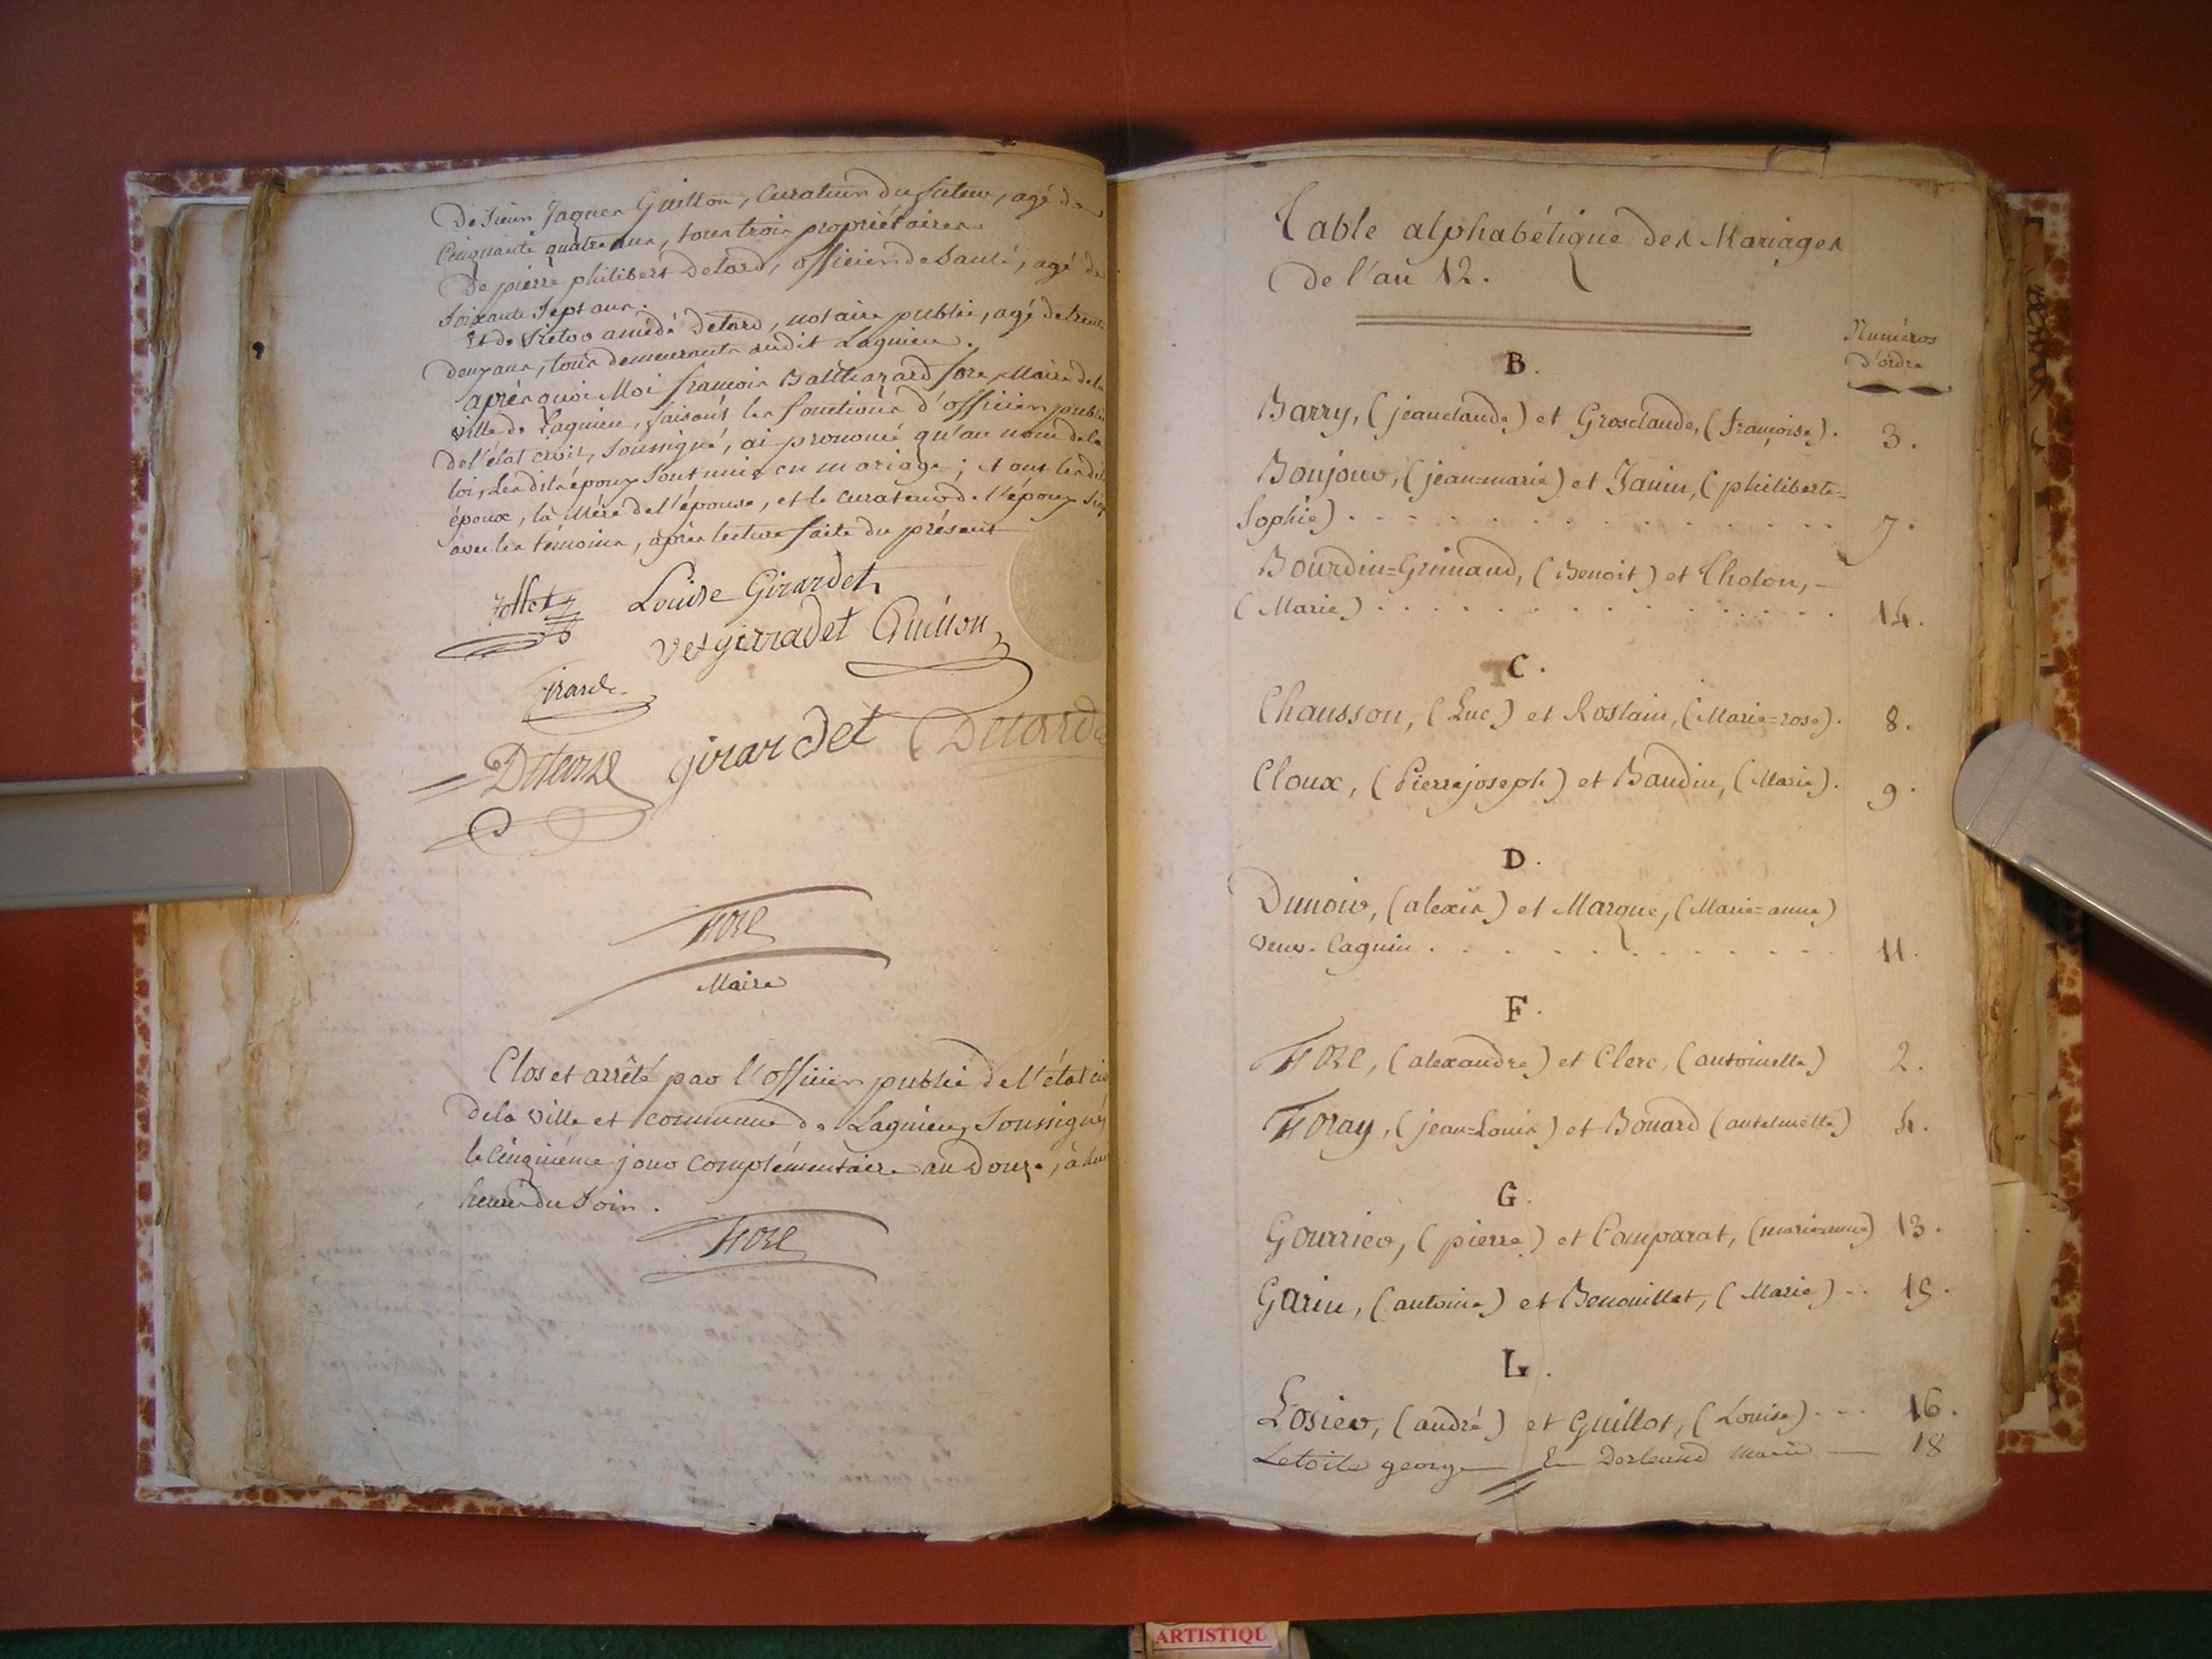 De Sieur Jaques Guillon, Curateur du futur, agé de
Cinquante quatre ans, tous trois propriétaires.
De pierre philibert Detard, officier de Santé, agé de
Soixante Sept ans.
Et de amédé Detard, notaire public, agé de trente
deux ans, tous demeurants audit Lagnieu.
après quoi Moi françois Balthazard fore, Maire de la
ville de Lagnieu, faisant les fonctions d'officier public
de l'état civil, Soussigné, ai prononcé qu'au nom de la
loi, les dits époux Sont unis en mariage ; et ont les dits
époux, la Mère de l'épouse, et le curateur de l'époux Sig
avec les témoins, après lecture faite du présent
Louise Girardet
girradet Guillon
girardet Detard
Fore
Maire
Clos et arrêté par l'officier public de l'état civ
de la ville et commune de Lagnieu, Soussigné
le Cinquième jour Complémentaire an Douze, à
heures du Soir.
Fore
Table alphabétique des Mariages
de l'an 12.
Numéros
d'ordre
B.
Barry, (jeanclaude) et Grosclaude, (françoise). 3.
Boujour, (jean=marie) et Janin, (philiberte=
Sophie) . . . . . . 7.
Bourdin=Grimaud, (Benoit) et Tholon, -
(Marie) . . . . . . 14.
C.
Chausson, (Luc) et Roslain, (Marie=rose). 8.
Cloux, (Pierre joseph) et Baudin, (Marie). 9.
D.
Dunoir, (alexis) et Marque, (Marie=anne)
veuve Caguin . . . . . . 11.
F.
Fore, (alexandre) et Clerc, (antoinette) 2.
Foray, (jean=Louis) et Bouard (antelmette) 4.
G.
Gourrier, (pierre) et Comparat, (marianne) 13.
Garin, (antoine) et Benouillat, (Marie) .. 15.
L.
Losier, (andré) et Guillot, (Louise) --- 16.
Letoile george & marie — 18
ARTISTIQU